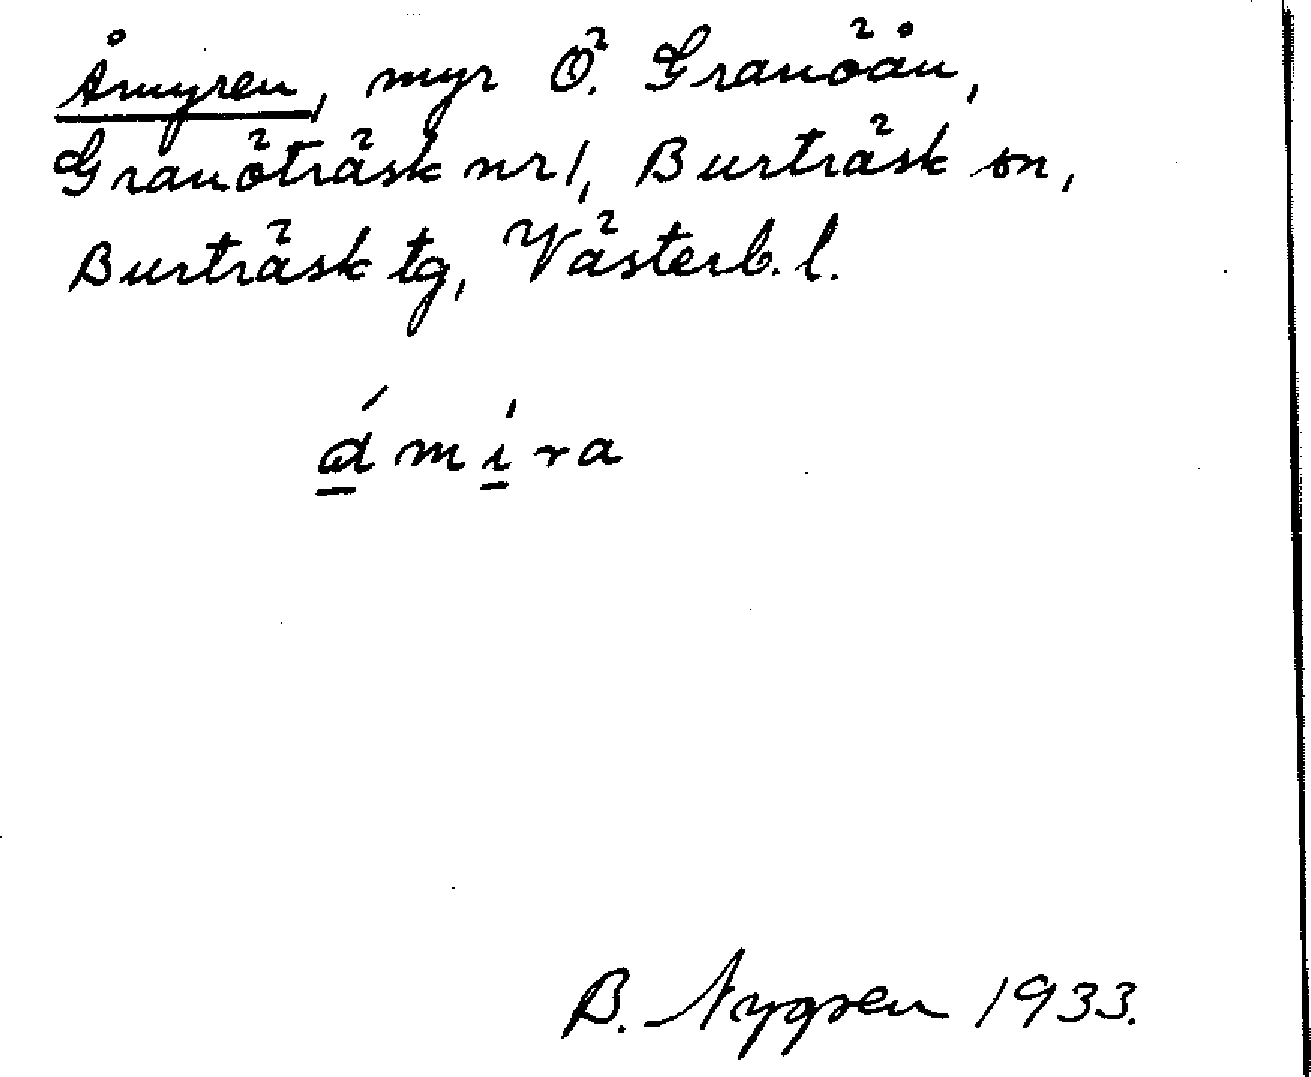 Åmyren, myr Ö. Granöån,
Granöträsk nr 1, Burträsk sn,
Burträsk tg, Västerb. l.
åmira
B. Nygren 1933.